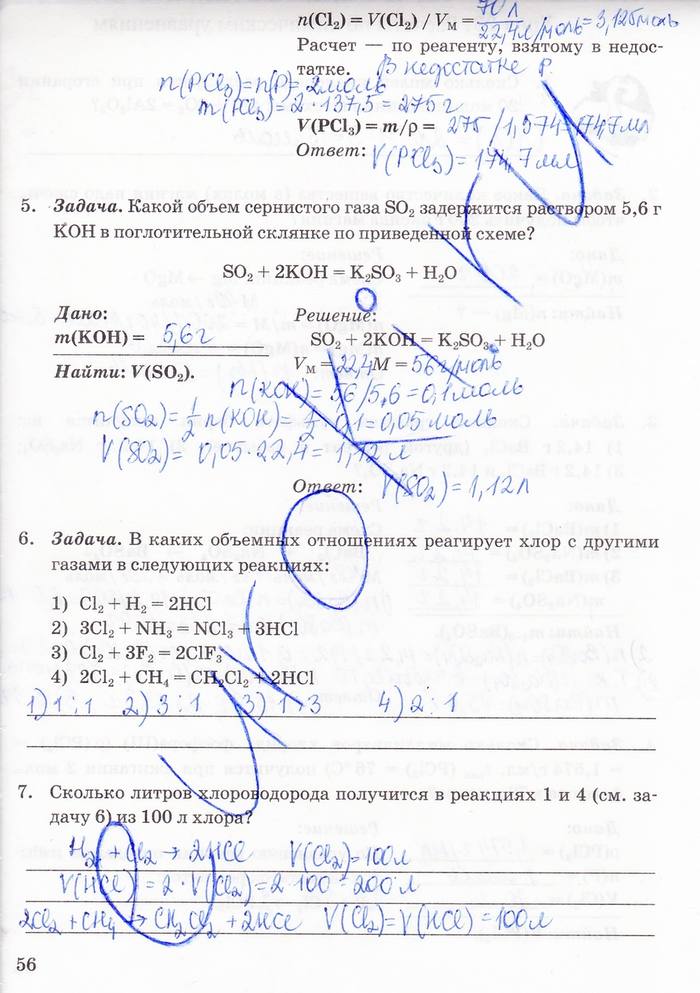 n(Cl₂) = V(Cl₂) / Vм = 70 л / 22,4 л/моль = 3,125 моль
Расчет — по реагенту, взятому в недос-
татке. В недостатке P.
n(PCl₃) = n(P) = 2 моль
m(PCl₃) = 2 · 137,5 = 275 г
V(PCl₃) = m/ρ = 275 / 1,574 = 174,7 мл
Ответ: V(PCl₃) = 174,7 мл
5. Задача. Какой объем сернистого газа SO₂ задержится раствором 5,6 г
KOH в поглотительной склянке по приведенной схеме?
SO₂ + 2KOH = K₂SO₃ + H₂O
Дано: Решение:
m(KOH) = 5,6 г SO₂ + 2KOH = K₂SO₃ + H₂O
Найти: V(SO₂). Vм = 22,4 M = 56 г/моль
n(KOH) = 56 / 5,6 = 0,1 моль
n(SO₂) = 1/2 n(KOH) = 1/2 · 0,1 = 0,05 моль
V(SO₂) = 0,05 · 22,4 = 1,12 л
Ответ: V(SO₂) = 1,12 л
6. Задача. В каких объемных отношениях реагирует хлор с другими
газами в следующих реакциях:
1) Cl₂ + H₂ = 2HCl
2) 3Cl₂ + NH₃ = NCl₃ + 3HCl
3) Cl₂ + 3F₂ = 2ClF₃
4) 2Cl₂ + CH₄ = CH₂Cl₂ + 2HCl
1) 1 : 1 2) 3 : 1 3) 1 : 3 4) 2 : 1
7. Сколько литров хлороводорода получится в реакциях 1 и 4 (см. за-
дачу 6) из 100 л хлора?
H₂ + Cl₂ → 2HCl V(Cl₂) = 100 л
V(HCl) = 2 · V(Cl₂) = 2 · 100 = 200 л
2Cl₂ + CH₄ → CH₂Cl₂ + 2HCl V(Cl₂) = V(HCl) = 100 л
56